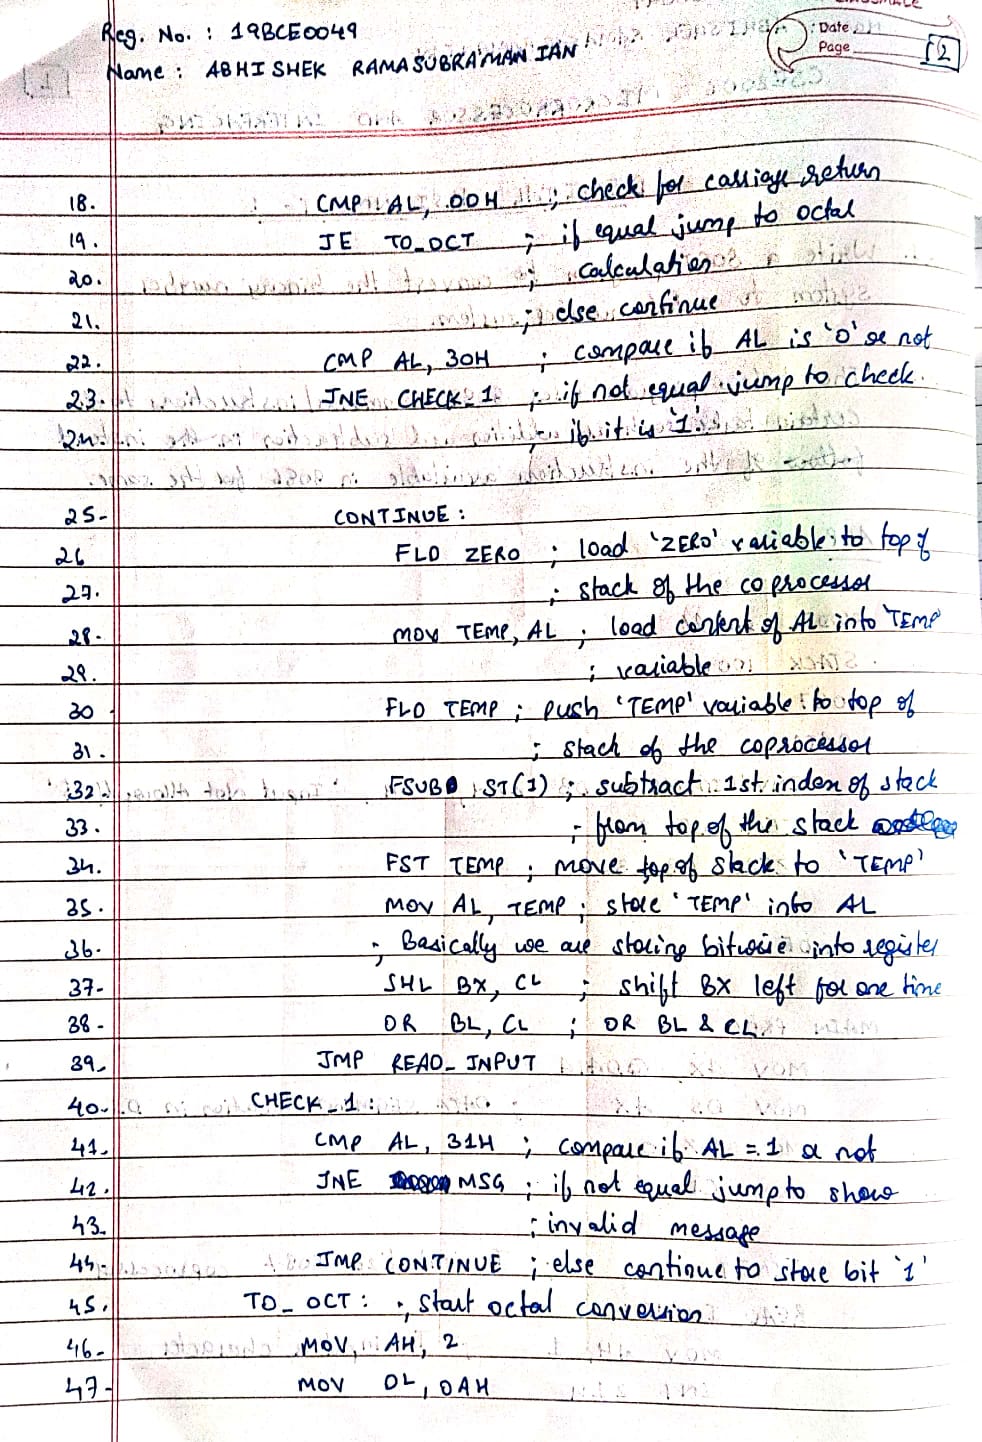 Reg. No. : 19BCE0049
Name : ABHISHEK RAMASUBRAMANIAN
Date
Page
12
18. CMP AL, 0DH ; check for carriage return
19. JE TO_OCT ; if equal jump to octal
20. ; calculation
21. ; else continue
22. CMP AL, 30H ; compare if AL is '0' or not
23. JNE CHECK_1 ; if not equal jump to check
24. ; if it is '1'
25- CONTINUE :
26 FLD ZERO ; load 'ZERO' variable to top of
27. ; stack of the coprocessor
28- MOV TEMP, AL ; load content of AL into TEMP
29. ; variable
30 FLD TEMP ; push 'TEMP' variable to top of
31. ; stack of the coprocessor
32 FSUB ST(1) ; subtract 1st index of stack
33. ; from top of the stack
34. FST TEMP ; move top of stack to 'TEMP'
35. MOV AL, TEMP ; store 'TEMP' into AL
36. ; Basically we are storing bitwise into register
37- SHL BX, CL ; shift BX left for one time
38- OR BL, CL ; OR BL & CL.
39. JMP READ_INPUT
40. CHECK_1 :
41. CMP AL, 31H ; compare if AL = 1 or not
42. JNE MSG ; if not equal jump to show
43. ; invalid message
44. JMP CONTINUE ; else continue to store bit '1'
45. TO_OCT : ; start octal conversion
46- MOV AH, 2
47- MOV DL, 0AH